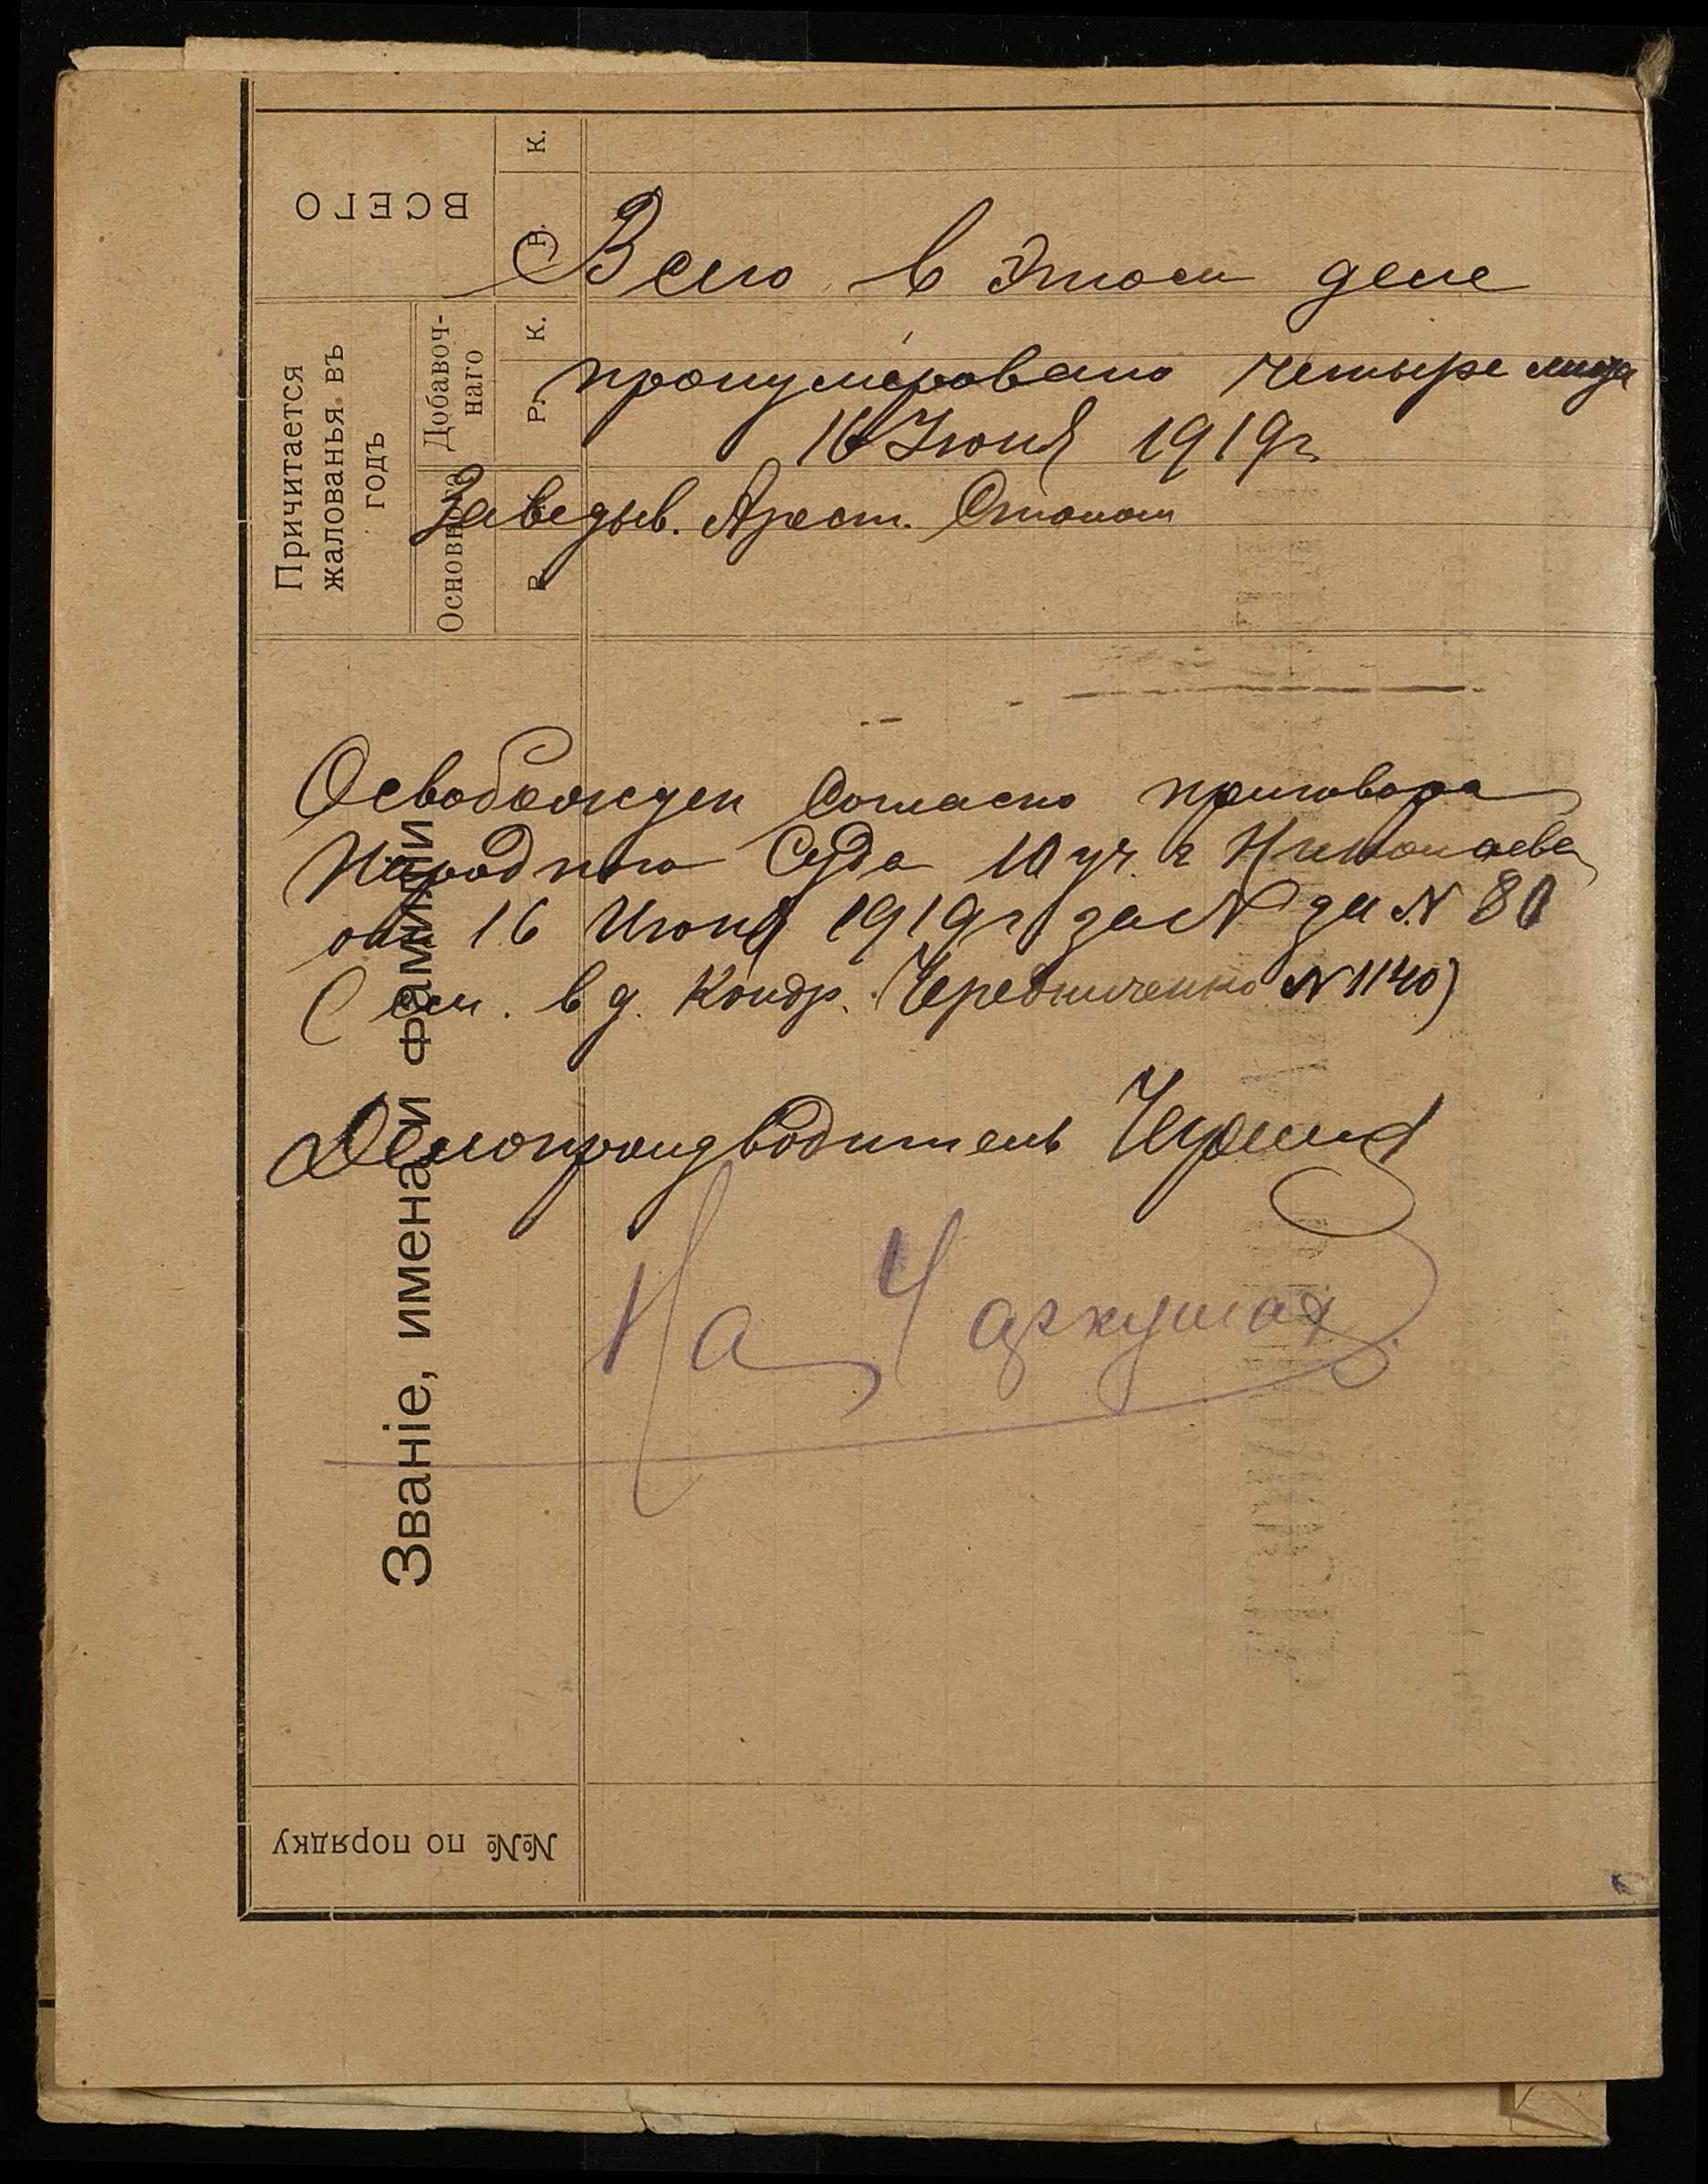 ВСЕГО
К.
Р.
Причитается
жалованья въ
годъ
Добавоч-
наго
К.
Р.
Основнаго
Р.
Всего в этом деле
пронумеровано четыре листа
16 Июня 1919 г.
Заведыв. Арест. Столом
Освобожден согласно приговора
Народного Суда 10 уч. г Николаева
от 16 Июня 1919 г за N за N 80
(см. в д. Кондр. Чередниченко N 1140)
Делопроизводитель
На 4 аркушах
Званіе, имена и фамиліи
№№ по порядку